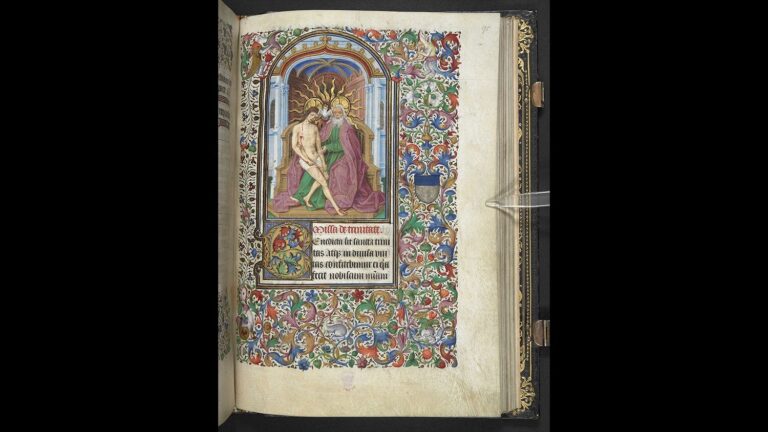 Missa de trinitate.
Benedicta sit sancta trini
tas Atqꝫ in diuisa vni
tas confitebimur ei
fecit nobiscum